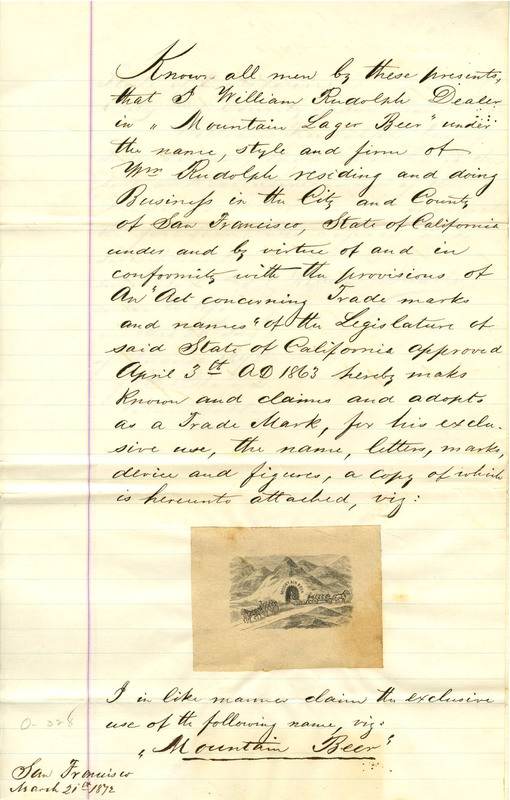 Know all men by these presents,
that I William Rudolph Dealer
in "Mountain Lager Beer" under
the name, style and firm of
Wm Rudolph residing and doing
Business in the City and County
of San Francisco, State of California
under and by virtue of and in
conformity with the provisions of
An "Act concerning Trade marks
and names" of the Legislature of
said State of California approved
April 3th AD 1863 hereby make
known and claims and adopts
as a Trade Mark, for his exclu-
sive use, the name, letters, marks,
device and figures, a copy of which
is hereunto attached, viz:
I in like manner claim the exclusive
use of the following name, viz:
"Mountain Beer"
O-328
San Francisco
March 21th 1872